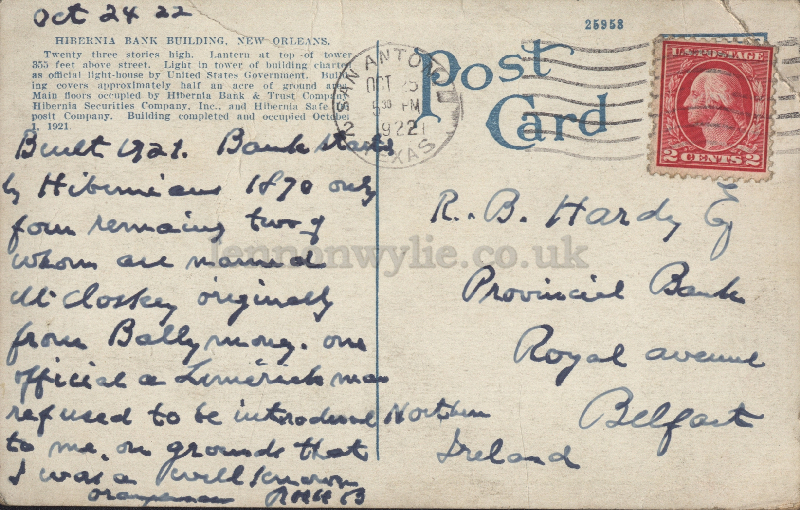 Oct 24 22
25958
HIBERNIA BANK BUILDING, NEW ORLEANS.
Twenty three stories high. Lantern at top of tower
355 feet above street. Light in tower of building charte
as official light-house by United States Government. Buil
ing covers approximately half an acre of ground area
Main floors occupied by Hibernia Bank & Trust Company
Hibernia Securities Company, Inc., and Hibernia Safe
posit Company. Building completed and occupied Octobe
1, 1921
Post Card
SAN ANTONIO
OCT 25
5 30 PM
1922
TEXAS
U.S. POSTAGE
2 CENTS 2
Built 1921. Bank started
by Hibernians 1870 only
four remaining two of
whom are named
McCloskey originally
from Ballymoney. one
official a Limerick man
refused to be introduced
to me, on grounds that
I was a well known
orangeman
R. B. Hardy Esq
Provincial Bank
Royal avenue
Belfast
Northern
Ireland
lennonwylie.co.uk